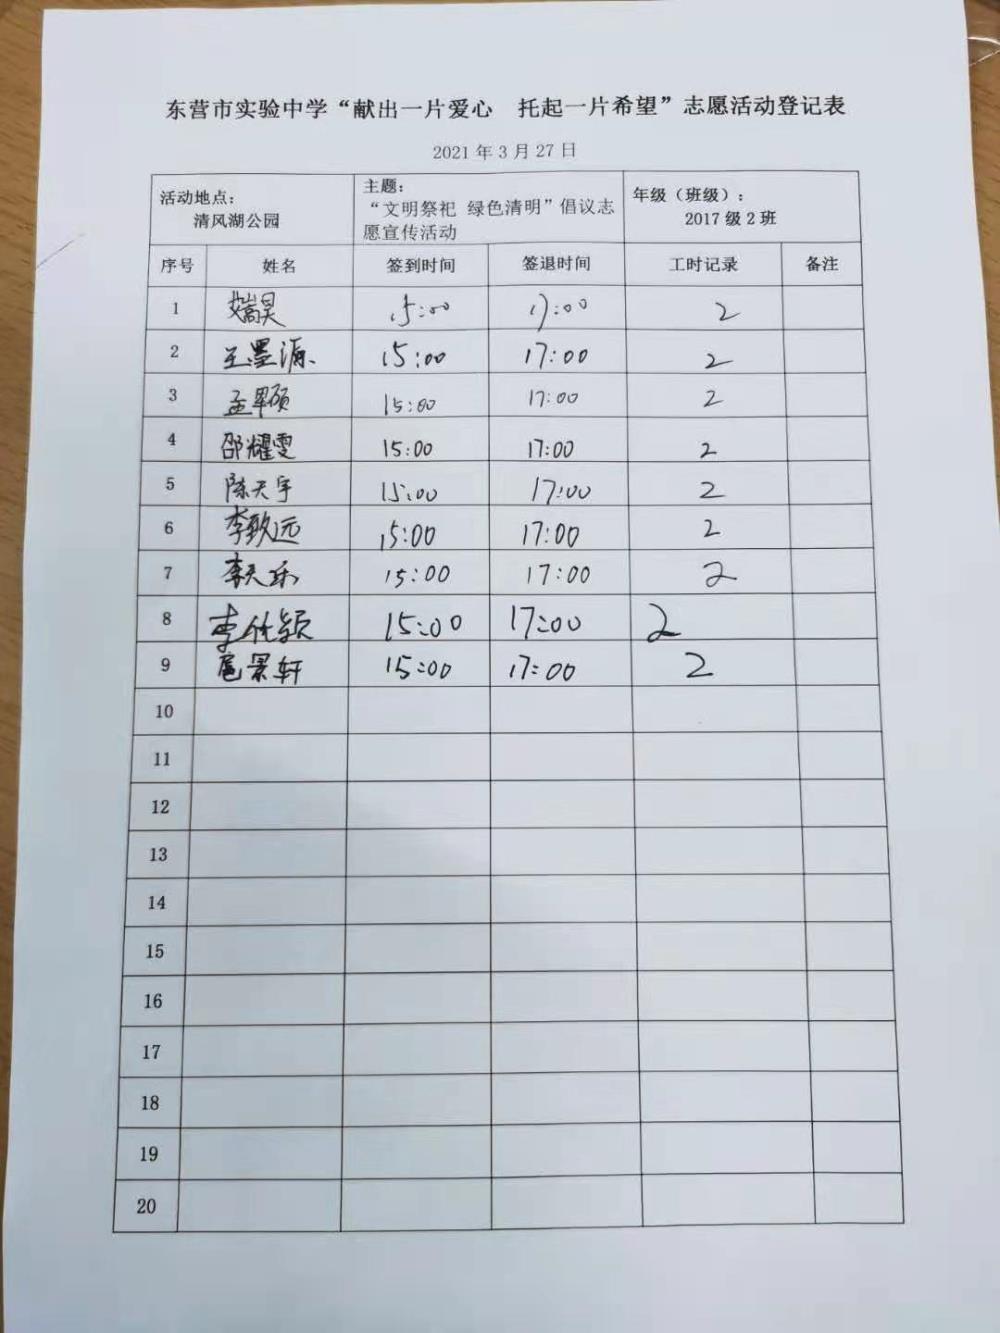 东营市实验中学“献出一片爱心 托起一片希望”志愿活动登记表
2021 年 3 月 27 日
活动地点： 清风湖公园
主题：
“文明祭祀 绿色清明”倡议志
愿宣传活动
年级（班级）：
2017 级 2 班
序号 姓名 签到时间 签退时间 工时记录 备注
1 15:00 17:00 2
2 王墨源 15:00 17:00 2
3 15:00 17:00 2
4 邵耀雯 15:00 17:00 2
5 陈天宇 15:00 17:00 2
6 李致远 15:00 17:00 2
7 李天乐 15:00 17:00 2
8 15:00 17:00 2
9 扈景轩 15:00 17:00 2
10
11
12
13
14
15
16
17
18
19
20